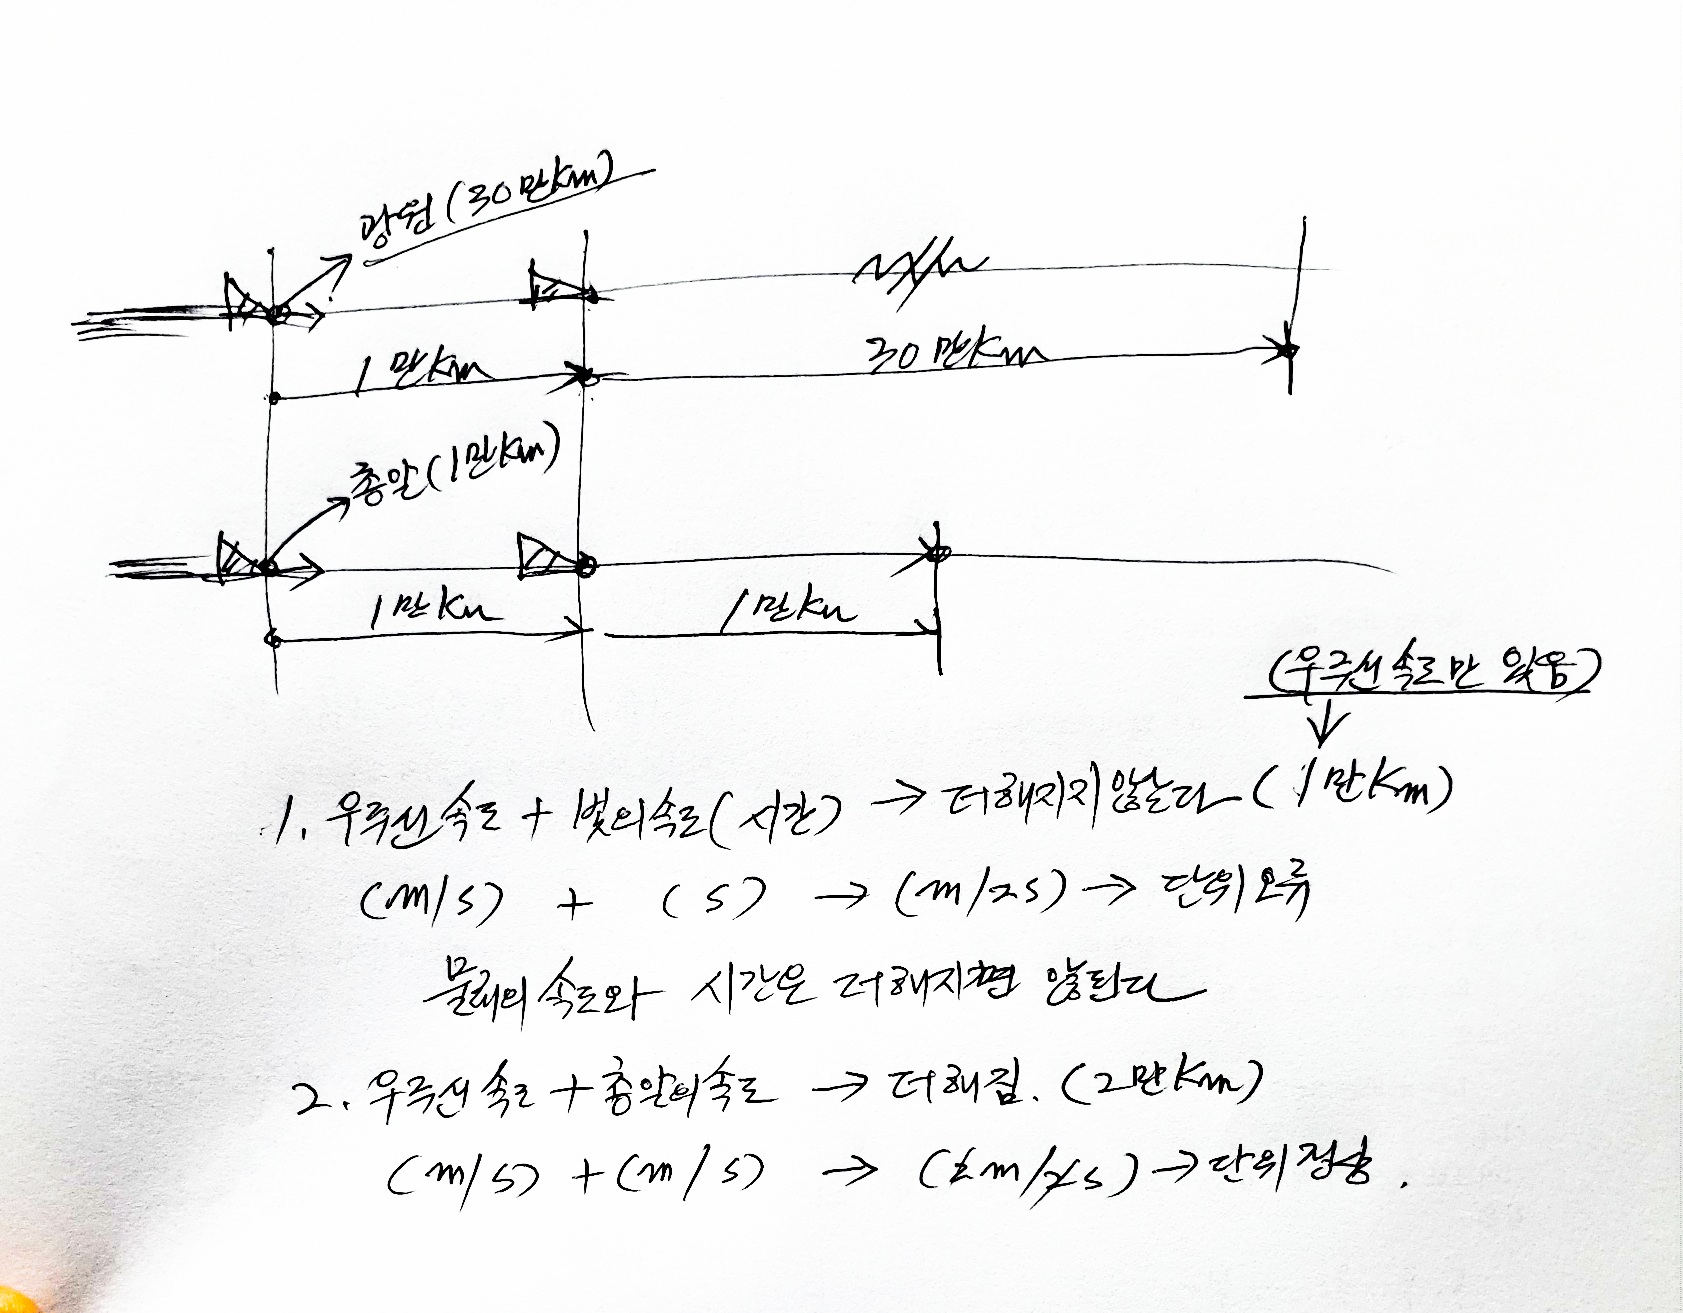 광원(30만Km)
1만Km
30만Km
총알(1만Km)
1만Km
1만Km
(우주선 속도만 있음)
1. 우주선 속도 + 빛의 속도(시간) → 더해지지 않는다 (1만Km)
(m/s) + (s) → (m/2s) → 단위 오류
물체의 속도와 시간은 더해지면 않된다
2. 우주선 속도 + 총알의 속도 → 더해짐. (2만Km)
(m/s) + (m/s) → (2m/2s) → 단위 정상.